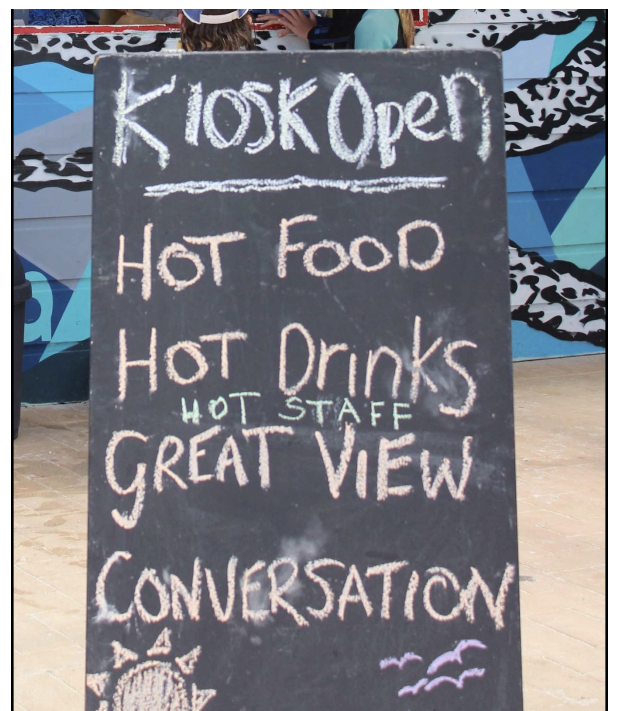 KIOSK Open
HOT FOOD
HOT Drinks
HOT STAFF
GREAT VIEW
CONVERSATION